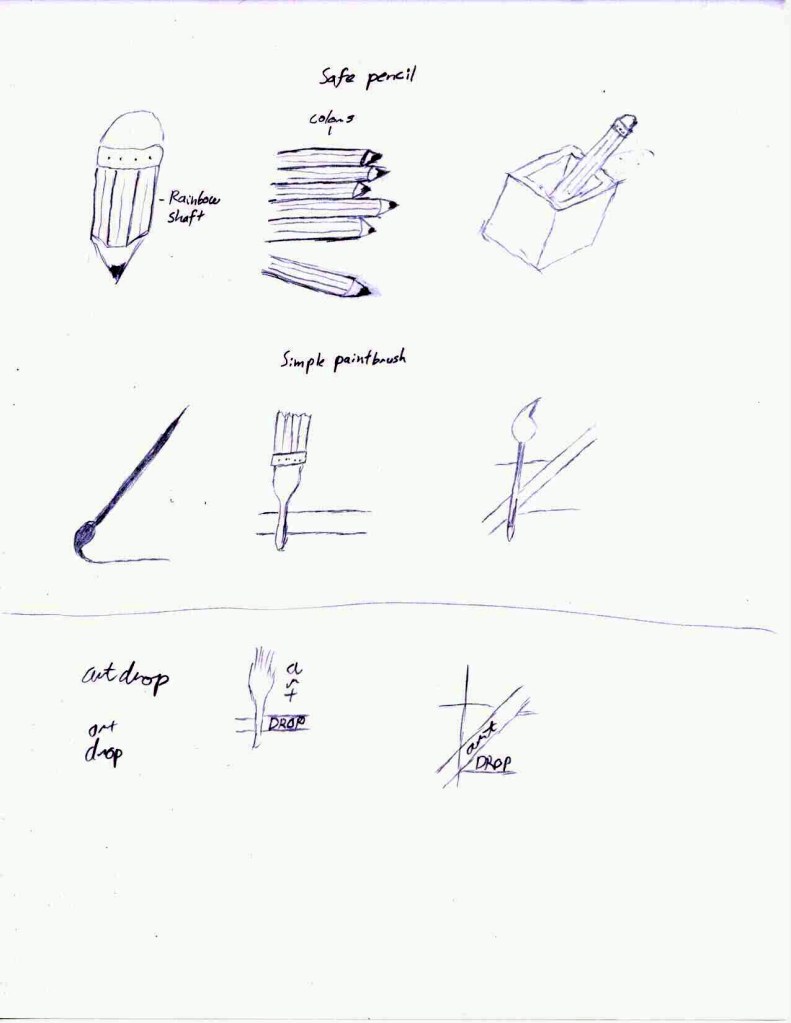 Safe pencil
colors
- Rainbow
shaft
Simple paintbrush
art drop
art
drop
art
DROP
art
DROP